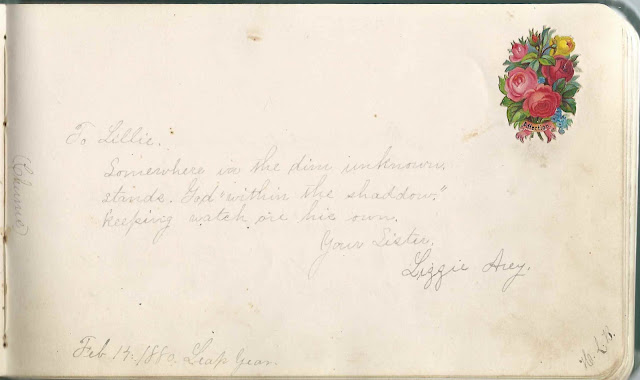 To Lillie.
Somewhere in the dim unknown.
stands. God "within the shaddow,"
keeping watch on his own.
Your Sister.
Lizzie Avey.
Feb 13. 1880. Leap Year.